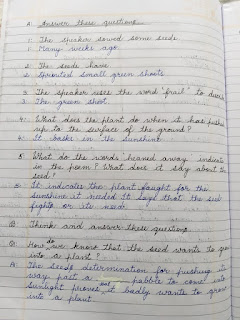 A. Answer these questions.
1. The speaker sowed some seeds
1. Many weeks ago.
2. The seeds have
2. Sprouted small green shoots
3. The speaker uses the word 'frail' to
3. The green shoot.
4. What does the plant do when it has
up to the surface of the ground?
4. It basks in the sunshine
5. What do the words heaved away indicate
in the poem? What does it say about the
seed?
5. It indicates the plant fought for the
sunshine it needed. It says that the
fights or its
B. Think and answer these questions
Q. How do we know that the seed wants to grow
into a plant?
A. The seeds determination for pushing its
way past a pebble to come into
sunlight proves it badly wants to grow
into a plant